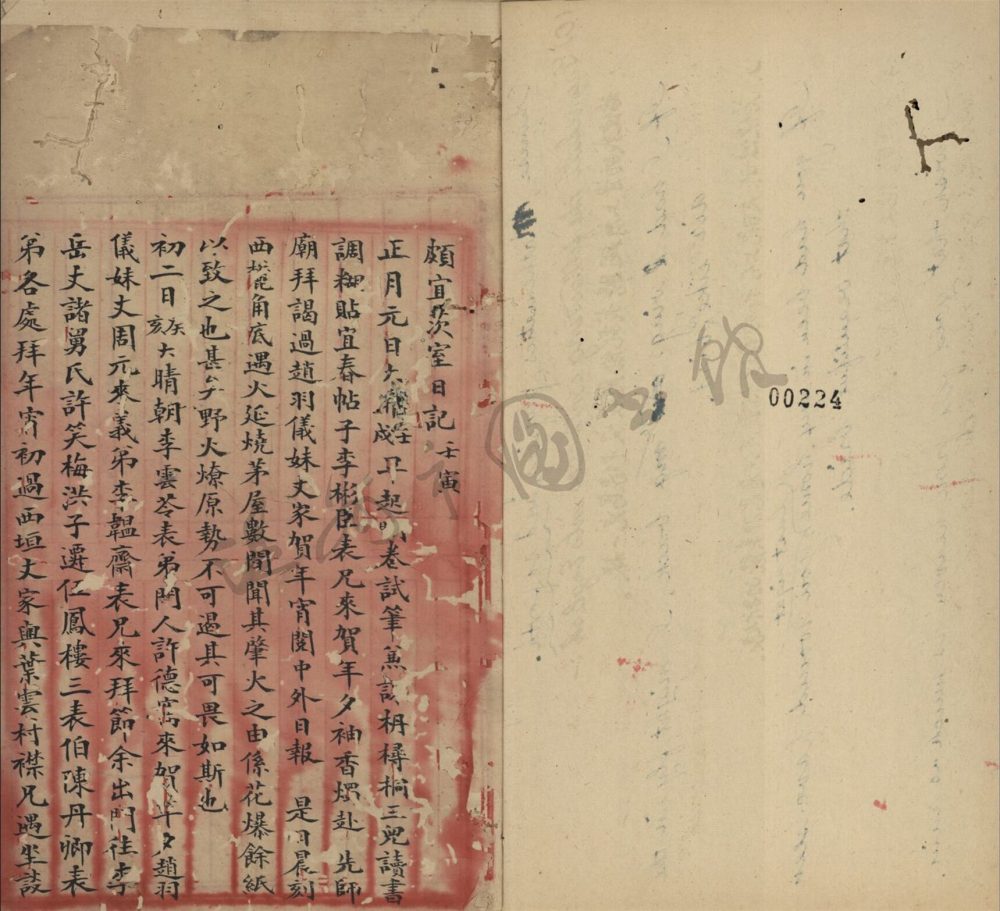 頗宜茨室日記 壬寅
正月元日 壬戌 大 早起 開卷試筆 薰 枬樗桐三兒讀書
調糊貼宜春帖子李彬臣表兄來賀年夕袖香燭赴 先師
廟拜謁過趙羽儀妹丈家賀年宵閱中外日報 是日晨刻
西 角底遇火延燒茅屋數間聞其肇火之由係花爆餘紙
以致之也甚矣野火燎原勢不可遏其可畏如斯也
初二日 癸亥 大晴朝李雲苓表弟門人許德 來賀年夕趙羽
儀妹丈周元來義弟李韞齋表兄來拜節余出門往李
岳丈諸舅氏許笑梅洪子遷伍鳳樓三表伯陳丹卿表
弟各處拜年宵初過西垣丈家與葉雲村襟兄遇坐談
00224